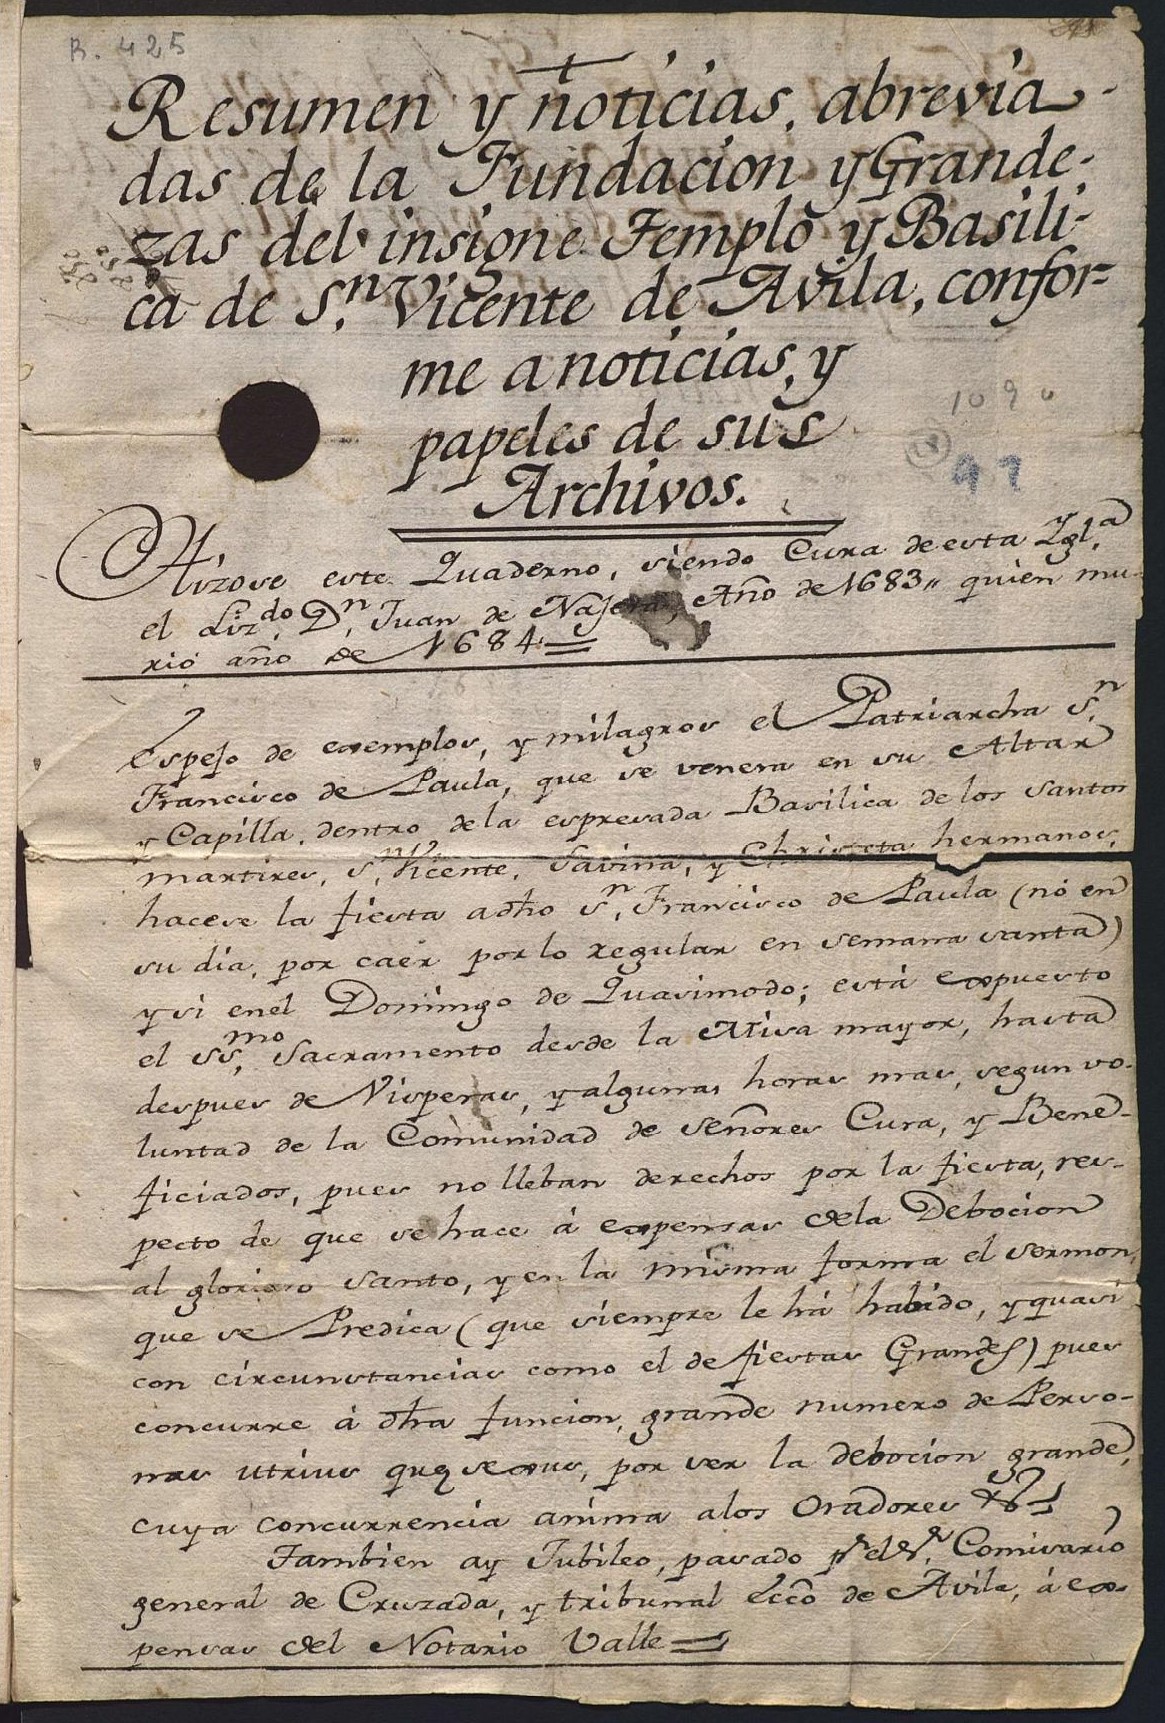 R. 425
Resumen y noticias, abrevia-
das de la Fundacion y Grande-
zas del insigne Templo y Basili-
ca de S.n Vicente de Avila, confor-
me a noticias, y
papeles de sus
Archivos.
1090
97
Hizose este Quaderno, siendo Cura de esta Ygl.a
el Liz.do D.n Juan de Najera, Año de 1683,, quien mu-
rió año de 1684 =
Espejo de exemplos, y milagros el Patriarcha S.n
Francisco de Paula, que se venera en su Altar
y Capilla, dentro de la espresada Basilica de los santos
martires, S.n Vicente, Savina, y Christeta hermanos,
hacese la fiesta a dho S.n Francisco de Paula (no en
su dia, por caér por lo regular en semana santa)
y si en el Domingo de Quasimodo; está expuesto
el SS.mo Sacramento desde la Misa mayor, hasta
despues de Visperas, y algunas horas mas, segun vo-
luntad de la Comunidad de señores Cura, y Bene-
ficiados, pues no lleban derechos por la fiesta, res-
pecto de que se hace á expensas de la Debocion
al glorioso santo, y en la misma forma el sermon,
que se Predica (que siempre le há habido, y quasi
con circunstancias como el de fiestas Grandes) pues
concurre á dha funcion, grande numero de Perso-
nas utrius que sexus, por ver la debocion grande,
cuya concurrencia anima a los Oradores &a
Tambien ay Jubileo, pasado pr el Sr. Comisario
general de Cruzada, y tribunal Ecco de Avila, á ex-
pensas del Notario Valle =